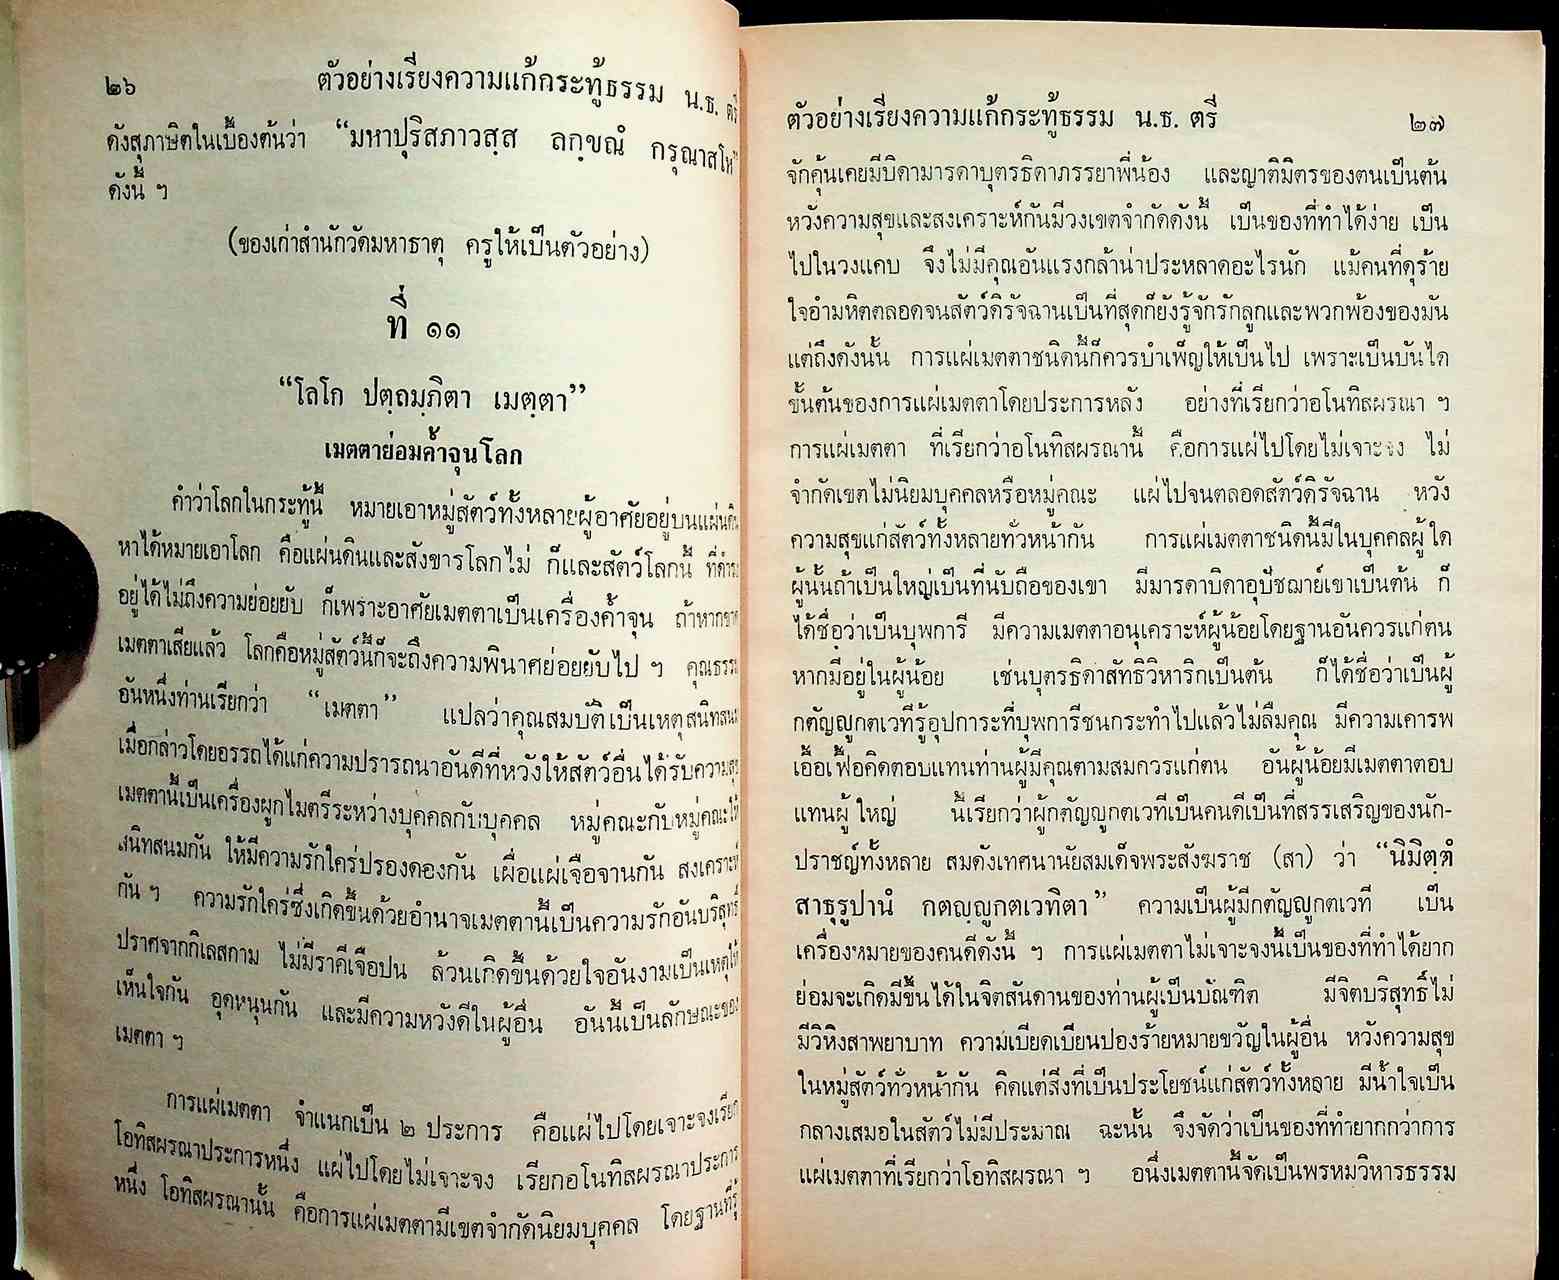 ๒๖ ตัวอย่างเรียงความแก้กระทู้ธรรม น.ธ. ตรี
ดังสุภาษิตในเบื้องต้นว่า “มหาปุริสภาวสฺส ลกฺขณํ กรุณาสโห”
ดังนี้ ฯ
(ของเก่าสำนักวัดมหาธาตุ ครูให้เป็นตัวอย่าง)
ที่ ๑๑
“โลโก ปตฺถมฺภิตา เมตฺตา”
เมตตาย่อมค้ำจุนโลก
คำว่าโลกในกระทู้นี้ หมายเอาหมู่สัตว์ทั้งหลายผู้อาศัยอยู่บนแผ่นดิน
หาได้หมายเอาโลก คือแผ่นดินและสังขารโลกไม่ ก็และสัตว์โลกนี้
อยู่ได้ไม่ถึงความย่อยยับ ก็เพราะอาศัยเมตตาเป็นเครื่องค้ำจุน ถ้าหาก
เมตตาเสียแล้ว โลกคือหมู่สัตว์นี้ก็จะถึงความพินาศย่อยยับไป ฯ คุณธรรม
อันหนึ่งท่านเรียกว่า “เมตตา” แปลว่าคุณสมบัติเป็นเหตุสนิทสนม
เมื่อกล่าวโดยอรรถได้แก่ความปรารถนาอันดีที่หวังให้สัตว์อื่นได้รับความสุข
เมตตานี้เป็นเครื่องผูกไมตรีระหว่างบุคคลกับบุคคล หมู่คณะกับหมู่คณะให้
สนิทสนมกัน ให้มีความรักใคร่ปรองดองกัน เผื่อแผ่เจือจานกัน สงเคราะห์
กัน ฯ ความรักใคร่ซึ่งเกิดขึ้นด้วยอำนาจเมตตานี้เป็นความรักอันบริสุทธิ์
ปราศจากกิเลสกาม ไม่มีราคีเจือปน ล้วนเกิดขึ้นด้วยใจอันงามเป็นเหตุให้
เห็นใจกัน อุดหนุนกัน และมีความหวังดีในผู้อื่น อันนี้เป็นลักษณะของ
เมตตา ฯ
การแผ่เมตตา จำแนกเป็น ๒ ประการ คือแผ่ไปโดยเจาะจงเรียก
โอทิสผรณาประการหนึ่ง แผ่ไปโดยไม่เจาะจง เรียกอโนทิสผรณาประการ
หนึ่ง โอทิสผรณานั้น คือการแผ่เมตตามีเขตจำกัดนิยมบุคคล โดยฐานที่รู้
ตัวอย่างเรียงความแก้กระทู้ธรรม น.ธ. ตรี ๒๗
จักคุ้นเคยมีบิดามารดาบุตรธิดาภรรยาพี่น้อง และญาติมิตรของตนเป็นต้น
หวังความสุขและสงเคราะห์กันมีวงเขตจำกัดดังนี้ เป็นของที่ทำได้ง่าย เป็น
ไปในวงแคบ จึงไม่มีคุณอันแรงกล้าน่าประหลาดอะไรนัก แม้คนที่ดุร้าย
ใจอำมหิตตลอดจนสัตว์ดิรัจฉานเป็นที่สุดก็ยังรู้จักรักลูกและพวกพ้องของมัน
แต่ถึงดังนั้น การแผ่เมตตาชนิดนี้ก็ควรบำเพ็ญให้เป็นไป เพราะเป็นบันได
ขั้นต้นของการแผ่เมตตาโดยประการหลัง อย่างที่เรียกว่าอโนทิสผรณา ฯ
การแผ่เมตตา ที่เรียกว่าอโนทิสผรณานี้ คือการแผ่ไปโดยไม่เจาะจง ไม่
จำกัดเขตไม่นิยมบุคคลหรือหมู่คณะ แผ่ไปจนตลอดสัตว์ดิรัจฉาน หวัง
ความสุขแก่สัตว์ทั้งหลายทั่วหน้ากัน การแผ่เมตตาชนิดนี้มีในบุคคลผู้ใด
ผู้นั้นถ้าเป็นใหญ่เป็นที่นับถือของเขา มีมารดาบิดาอุปัชฌาย์เขาเป็นต้น ก็
ได้ชื่อว่าเป็นบุพการี มีความเมตตาอนุเคราะห์ผู้น้อยโดยฐานอันควรแก่ตน
หากมีอยู่ในผู้น้อย เช่นบุตรธิดาสัทธิวิหาริกเป็นต้น ก็ได้ชื่อว่าเป็นผู้
กตัญญูกตเวทีรู้อุปการะที่บุพการีชนกระทำไปแล้วไม่ลืมคุณ มีความเคารพ
เอื้อเฟื้อคิดตอบแทนท่านผู้มีคุณตามสมควรแก่ตน อันผู้น้อยมีเมตตาตอบ
แทนผู้ใหญ่ นี้เรียกว่าผู้กตัญญูกตเวทีเป็นคนดีเป็นที่สรรเสริญของนัก-
ปราชญ์ทั้งหลาย สมดังเทศนานัยสมเด็จพระสังฆราช (สา) ว่า “นิมิตฺตํ
สาธุรูปานํ กตญฺญูกตเวทิตา” ความเป็นผู้มีกตัญญูกตเวที เป็น
เครื่องหมายของคนดีดังนี้ ฯ การแผ่เมตตาไม่เจาะจงนี้เป็นของที่ทำได้ยาก
ย่อมจะเกิดมีขึ้นได้ในจิตสันดานของท่านผู้เป็นบัณฑิต มีจิตบริสุทธิ์ไม่
มีวิหิงสาพยาบาท ความเบียดเบียนปองร้ายหมายขวัญในผู้อื่น หวังความสุข
ในหมู่สัตว์ทั่วหน้ากัน คิดแต่สิ่งที่เป็นประโยชน์แก่สัตว์ทั้งหลาย มีน้ำใจเป็น
กลางเสมอในสัตว์ไม่มีประมาณ ฉะนั้น จึงจัดว่าเป็นของที่ทำยากกว่าการ
แผ่เมตตาที่เรียกว่าโอทิสผรณา ฯ อนึ่งเมตตานี้จัดเป็นพรหมวิหารธรรม